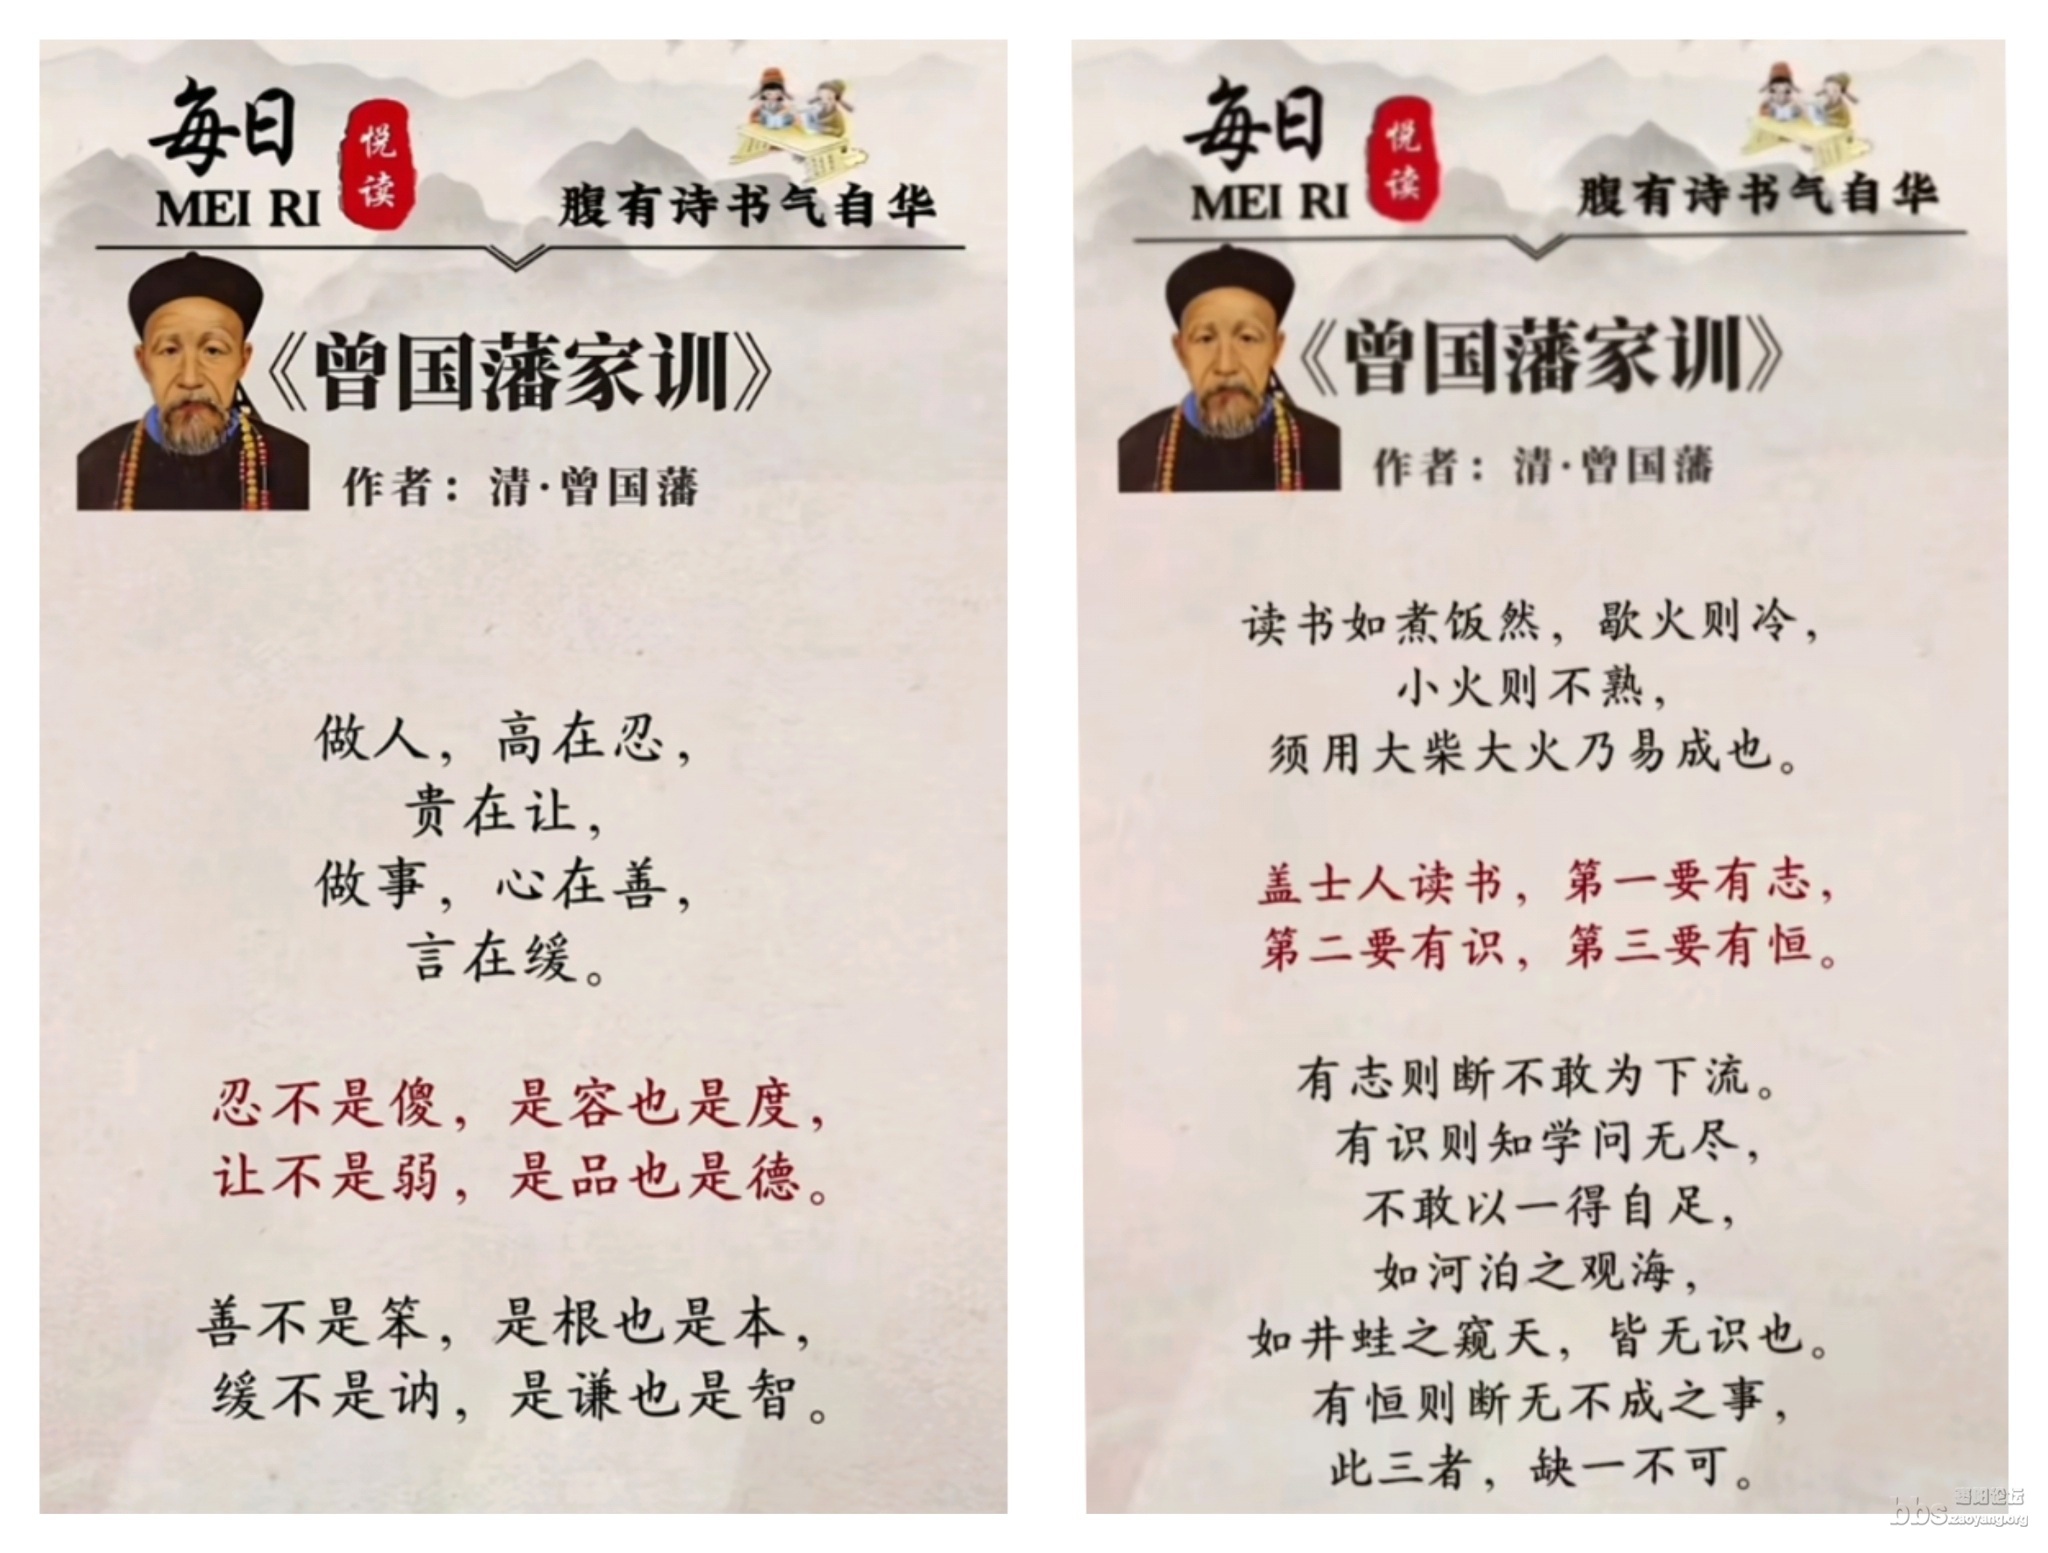 每日
悦读
MEI RI
腹有诗书气自华
《曾国藩家训》
作者：清·曾国藩
做人，高在忍，
贵在让，
做事，心在善，
言在缓。
忍不是傻，是容也是度，
让不是弱，是品也是德。
善不是笨，是根也是本，
缓不是讷，是谦也是智。
每日
悦读
MEI RI
腹有诗书气自华
《曾国藩家训》
作者：清·曾国藩
读书如煮饭然，歇火则冷，
小火则不熟，
须用大柴大火乃易成也。
盖士人读书，第一要有志，
第二要有识，第三要有恒。
有志则断不敢为下流。
有识则知学问无尽，
不敢以一得自足，
如河泊之观海，
如井蛙之窥天，皆无识也。
有恒则断无不成之事，
此三者，缺一不可。
bbs.zaoyang.org